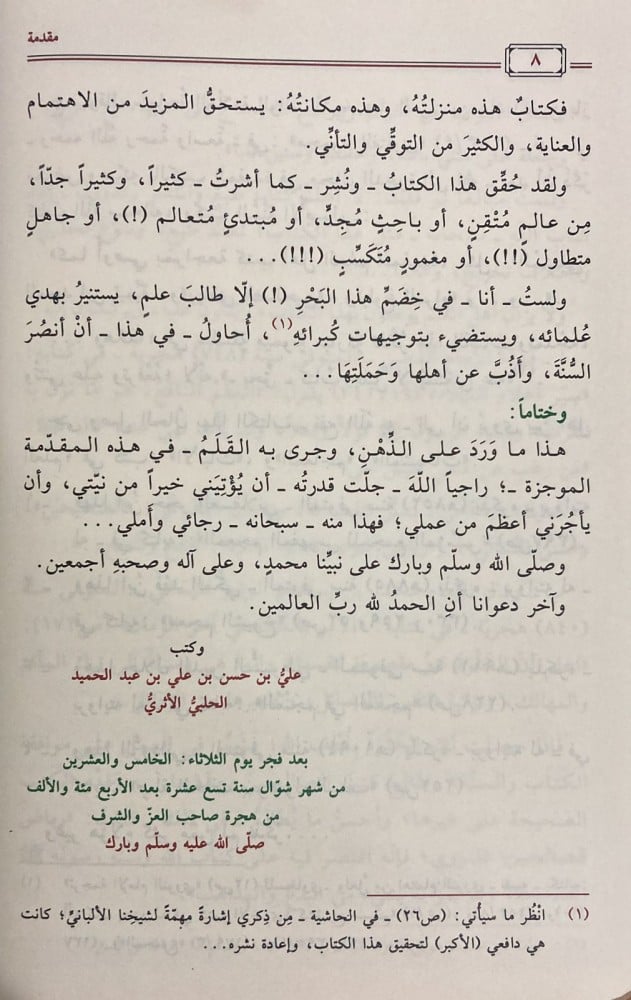 مقدمة
٨
فكتابٌ هذه منزلتُهُ، وهذه مكانتُهُ: يستحقُّ المزيدَ من الاهتمام
والعناية، والكثيرَ من التوقِّي والتأنِّي.
ولقد حُقِّق هذا الكتابُ ـ ونُشِر ـ كما أشرتُ ـ كثيراً، وكثيراً جدّاً،
مِن عالمٍ مُتْقِنٍ، أو باحِثٍ مُجِدٍّ، أو مُبتدئٍ مُتعالم (!)، أو جاهلٍ
متطاول (!!)، أو مغمورٍ مُتَكَسِّبٍ (!!!)...
ولستُ ـ أنا ـ في خِضَمِّ هذا البَحْرِ (!) إلّا طالبَ علمٍ، يستنيرُ بهدي
عُلمائه، ويستضيء بتوجيهات كُبرائهِ(١)، أُحاولُ ـ في هذا ـ أنْ أنصُرَ
السُّنَّةَ، وأَذُبَّ عن أهلها وَحَمَلَتِهَا...
وختاماً:
هذا ما وَرَدَ على الذِّهْنِ، وجرى به القَلَمُ ـ في هذه المقدّمة
الموجزة ـ؛ راجياً اللّهَ ـ جلّت قدرتُه ـ أن يُؤْتِيَني خيراً من نيّتي، وأن
يأجُرَني أعظمَ من عملي؛ فهذا منه ـ سبحانه ـ رجائي وأَملي...
وصلّى الله وسلّم وبارك على نبيِّنا محمدٍ، وعلى آله وصحبهِ أجمعين.
وآخر دعوانا أنِ الحمدُ لله ربِّ العالمين.
وكتب
عليُّ بن حسن بن علي بن عبد الحميد
الحلبيُّ الأثريُّ
بعد فجر يوم الثلاثاء: الخامس والعشرين
من شهر شوّال سنة تسع عشرة بعد الأربع مئة والألف
من هجرة صاحب العزّ والشرف
صلّى الله عليه وسلّم وبارك
(١) انْظُر ما سيأتي: (ص٢٦) ـ في الحاشية ـ مِن ذِكري إشارةً مهمّةً لشيخِنا الألبانيِّ؛ كانت
هي دافعي (الأكبر) لتحقيق هذا الكتاب، وإعادة نشره...